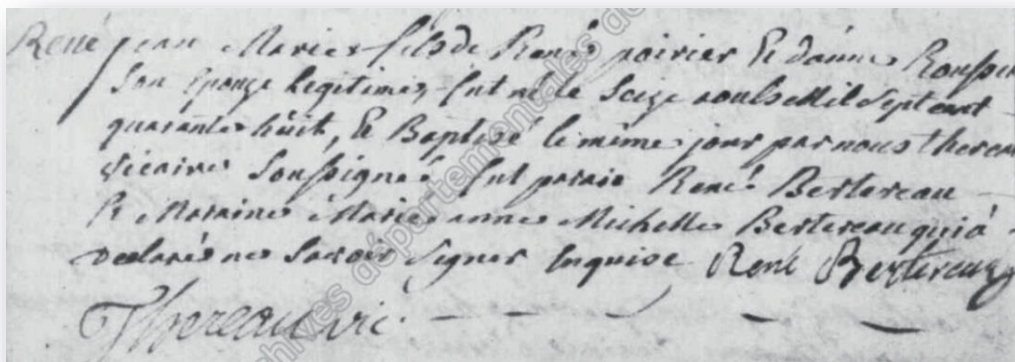 René jean Marie fils de René poirier Et d'anne
Son Epouze Legitime, fut né le Seize aoust Mil Sept cent
quarante huit, Et Baptisé le même jour par nous
Vicaire Soussigné fut parain René Bertereau
Et Maraine Marie anne Michelle Bertereau qui a
declaré ne Savoir Signer Enquise René Bertereau
Thereau vic.